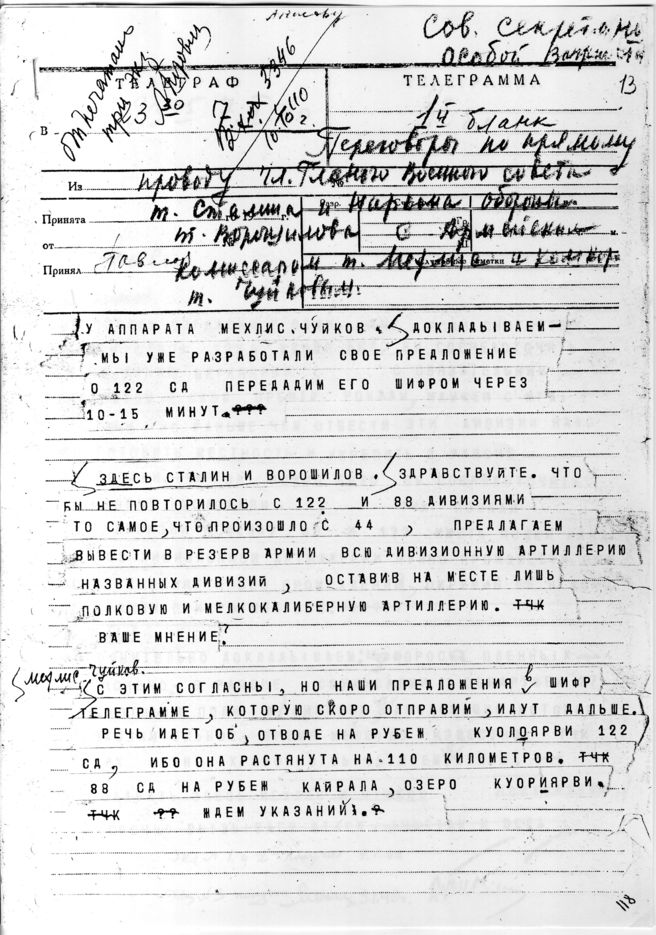 Сов. Секретно
Особой
13
отпечатано
три экз
3346
ТЕЛЕГРАФ
ТЕЛЕГРАММА
В
1й бланк
Переговоры по прямому
Из
проводу Чл. Главного Военного совета
Принята
т. Сталина и Наркома обороны
от
т. Ворошилова с Армейским
Принял
комиссаром т. Мехлис и комкор
т. Чуйковым.
У АППАРАТА МЕХЛИС.ЧУЙКОВ. ДОКЛАДЫВАЕМ—
МЫ УЖЕ РАЗРАБОТАЛИ СВОЕ ПРЕДЛОЖЕНИЕ
О 122 СД ПЕРЕДАДИМ ЕГО ШИФРОМ ЧЕРЕЗ
10-15 МИНУТ.???
ЗДЕСЬ СТАЛИН И ВОРОШИЛОВ. ЗДРАВСТВУЙТЕ. ЧТО
БЫ НЕ ПОВТОРИЛОСЬ С 122 И 88 ДИВИЗИЯМИ
ТО САМОЕ,ЧТО ПРОИЗОШЛО С 44, ПРЕДЛАГАЕМ
ВЫВЕСТИ В РЕЗЕРВ АРМИИ ВСЮ ДИВИЗИОННУЮ АРТИЛЛЕРИЮ
НАЗВАННЫХ ДИВИЗИЙ, ОСТАВИВ НА МЕСТЕ ЛИШЬ
ПОЛКОВУЮ И МЕЛКОКАЛИБЕРНУЮ АРТИЛЛЕРИЮ. ТЧК
ВАШЕ МНЕНИЕ?
Мехлис Чуйков.
С ЭТИМ СОГЛАСНЫ, НО НАШИ ПРЕДЛОЖЕНИЯ в ШИФР
ТЕЛЕГРАММЕ, КОТОРУЮ СКОРО ОТПРАВИЙ,ИДУТ ДАЛЬШЕ.
РЕЧЬ ИДЕТ ОБ, ОТВОДЕ НА РУБЕЖ КУОЛОЯРВИ 122
СД, ИБО ОНА РАСТЯНУТА НА 110 КИЛОМЕТРОВ. ТЧК
88 СД НА РУБЕЖ КАЙРАЛА, ОЗЕРО КУОРИЯРВИ.
ТЧК ?? ЖДЕМ УКАЗАНИЙ.?
118